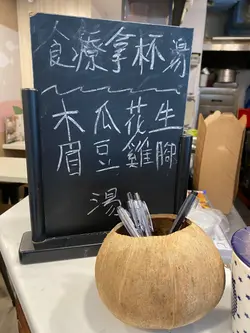 食療拿杯湯
木瓜花生
眉豆雞腳
湯